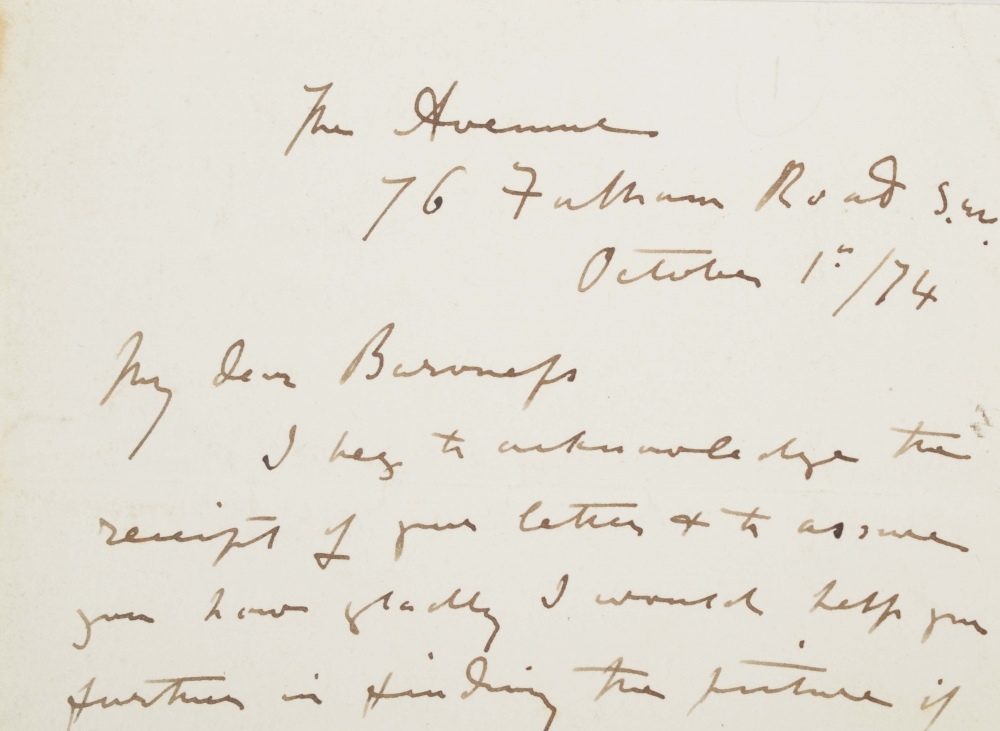 The Avenue
76 Fulham Road S.W.
October 1st/74
My dear Baroness
I beg to acknowledge the
receipt of your letter & to assure
you how gladly I would help you
further in finding the picture if